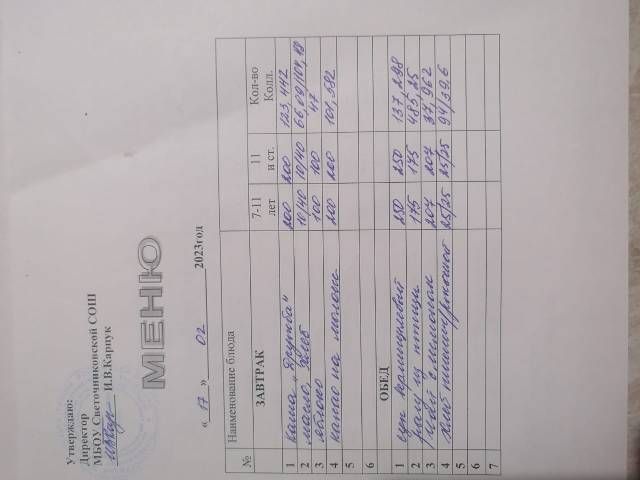 Утверждаю:
Директор
МБОУ Светочниковской СОШ
И.В.Карпук
МЕНЮ
« 17 » 02 2023год
№ Наименование блюда 7-11 лет 11 и ст. Кол-во Колл.
ЗАВТРАК
1 каша „Дружба" 200 200 123,442
2 масло, хлеб 10/40 10/40 66,09/104,18
3 яблоко 100 100 47
4 какао на молоке 200 200 101,592
5
6
ОБЕД
1 суп вермишелевый 250 250 137,298
2 рагу из птицы 175 175 485,25
3 чай с лимоном 207 207 37,962
4 хлеб пшенич/ржаной 25/25 25/25 94/39,6
5
6
7